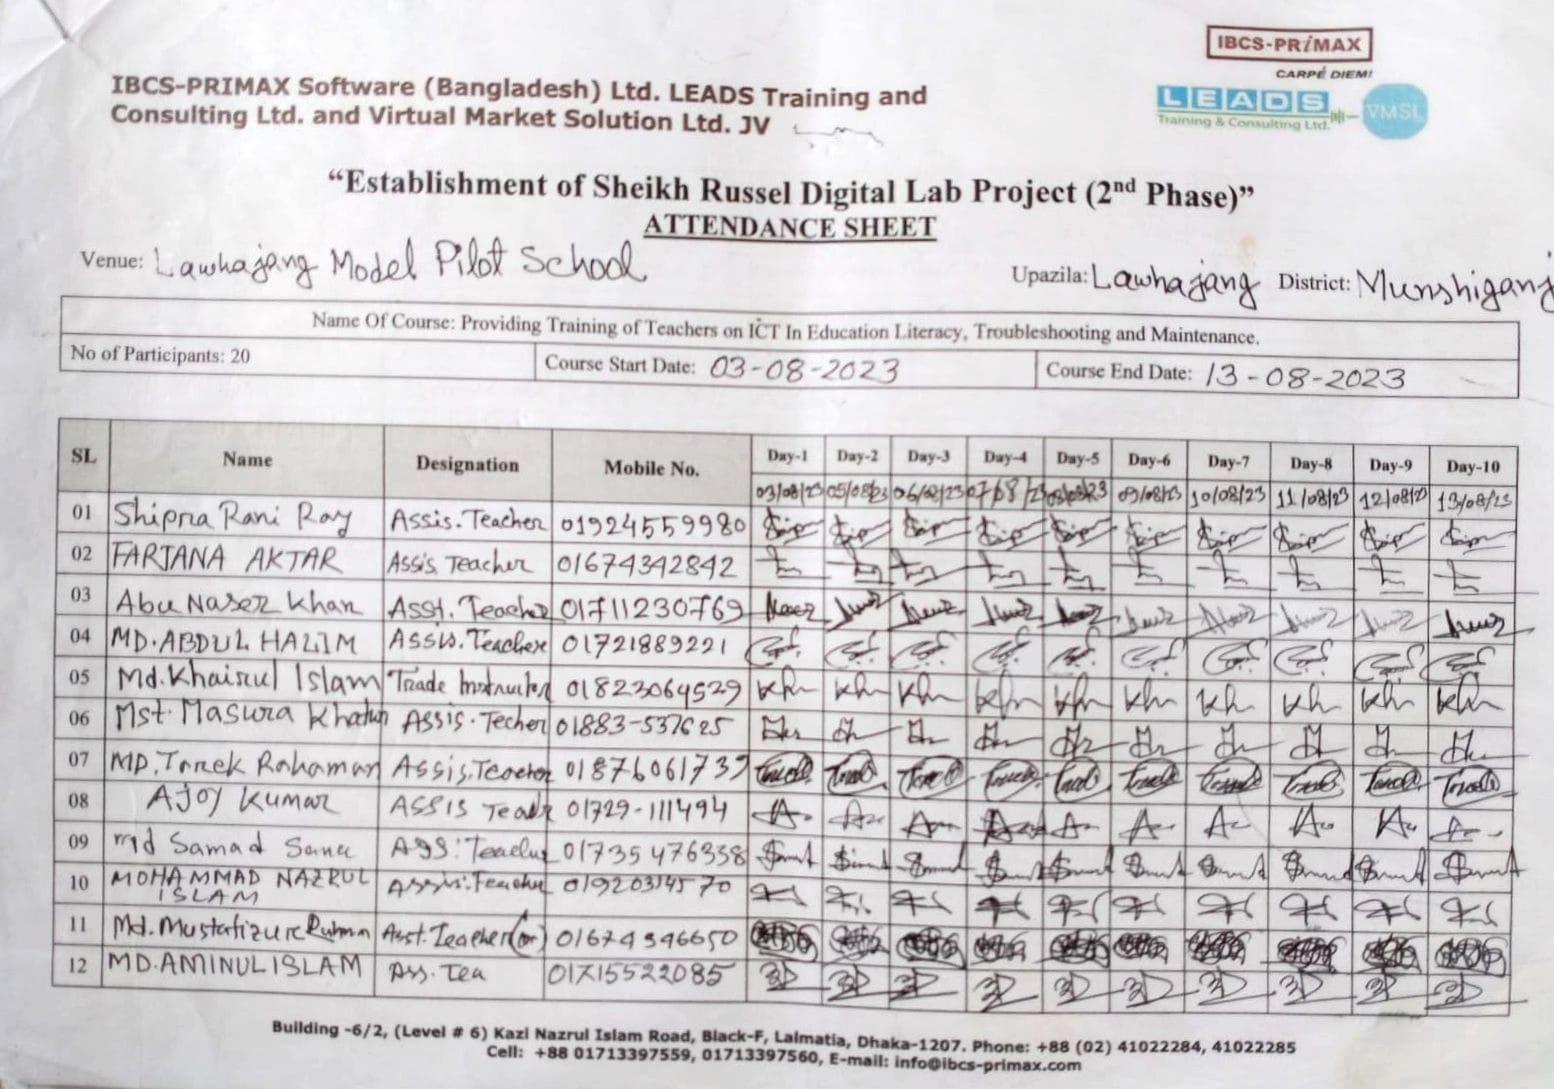 IBCS-PRiMAX
CARPÉ DIEM!
IBCS-PRIMAX Software (Bangladesh) Ltd. LEADS Training and
Consulting Ltd. and Virtual Market Solution Ltd. JV
LEADS
Training & Consulting Ltd.
VMSL
“Establishment of Sheikh Russel Digital Lab Project (2nd Phase)”
ATTENDANCE SHEET
Venue: Lawhajang Model Pilot School Upazila: Lawhajang District: Munshiganj
Name Of Course: Providing Training of Teachers on ICT In Education Literacy, Troubleshooting and Maintenance.
No of Participants: 20 Course Start Date: 03-08-2023 Course End Date: 13-08-2023
SL Name Designation Mobile No. Day-1 Day-2 Day-3 Day-4 Day-5 Day-6 Day-7 Day-8 Day-9 Day-10
03/08/23 05/08/23 06/08/23 07/08/23 08/08/23 09/08/23 10/08/23 11/08/23 12/08/23 13/08/23
01 Shipra Rani Roy Assis. Teacher 01924559980
02 FARJANA AKTAR Assis Teacher 01674342842
03 Abu Naser Khan Asst. Teacher 01711230769
04 MD. ABDUL HALIM Assis. Teacher 01721889221
05 Md. Khairul Islam Trade Instructor 01823064529
06 Mst. Masura Khatun Assis. Techer 01883-537625
07 MD. Tarek Rahaman Assis. Teacher 01876061739
08 AJOY KUMAR ASSIS 01729-111494
09 md Samad Ass: Teacher 01735476338
10 MOHAMMAD NAZRUL
ISLAM Assis. Teacher
11 Md. Mustafizur Rahman Asst. Teacher 01674346650
12 MD. AMINUL ISLAM Ass. Tea 01715522085
Building -6/2, (Level # 6) Kazi Nazrul Islam Road, Black-F, Lalmatia, Dhaka-1207. Phone: +88 (02) 41022284, 41022285
Cell: +88 01713397559, 01713397560, E-mail: info@ibcs-primax.com